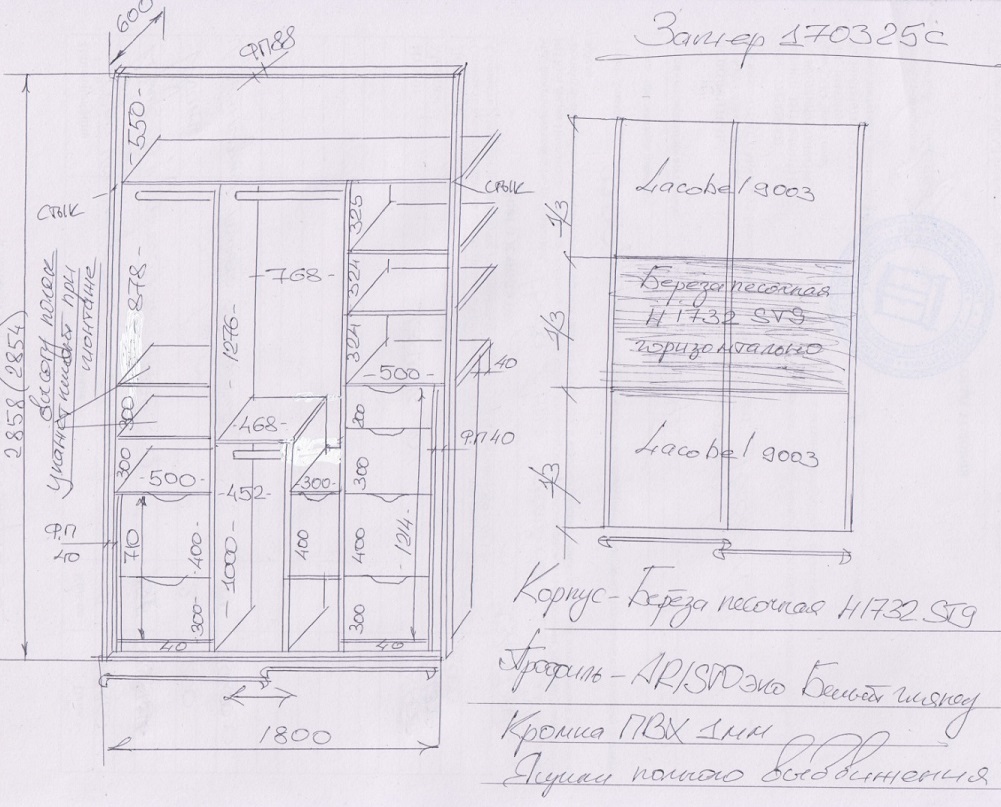 600
ФП88
Замер 170325С
-550-
стык
стык
325
324
324
-768-
-878-
1276-
2858(2854)
высоту полок
при
монтаже
300
300
-500-
-468-
-500-
40
200
ФП40
-452-
-300-
300
Ф.П
40
710
-400-
-1000-
400
400
-1214-
300-
300
40
40
1800
1/3
1/3
1/3
Lacobel 9003
Береза песочная
H1732 ST9
горизонтально
Lacobel 9003
Корпус-Береза песочная H1732 ST9
Профиль-ARISTO эко Белый глянец
Кромка ПВХ 1мм
Ящики полного выдвижения